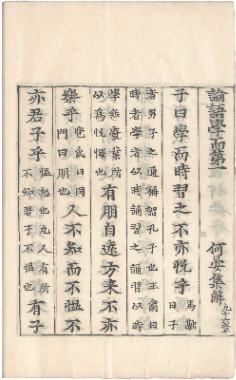 論語學而第一 何晏集解 凡十六章
子曰學而時習之不亦悅乎 馬融曰子
者男子之通稱謂孔子也王肅曰
時者學者以時誦習之誦習以時
學無廢業所以為悅懌也有朋自遠方來不亦
樂乎 苞氏曰同門曰朋也 人不知而不慍不
亦君子乎 慍怒也凡人有所不知君子不慍也 有子